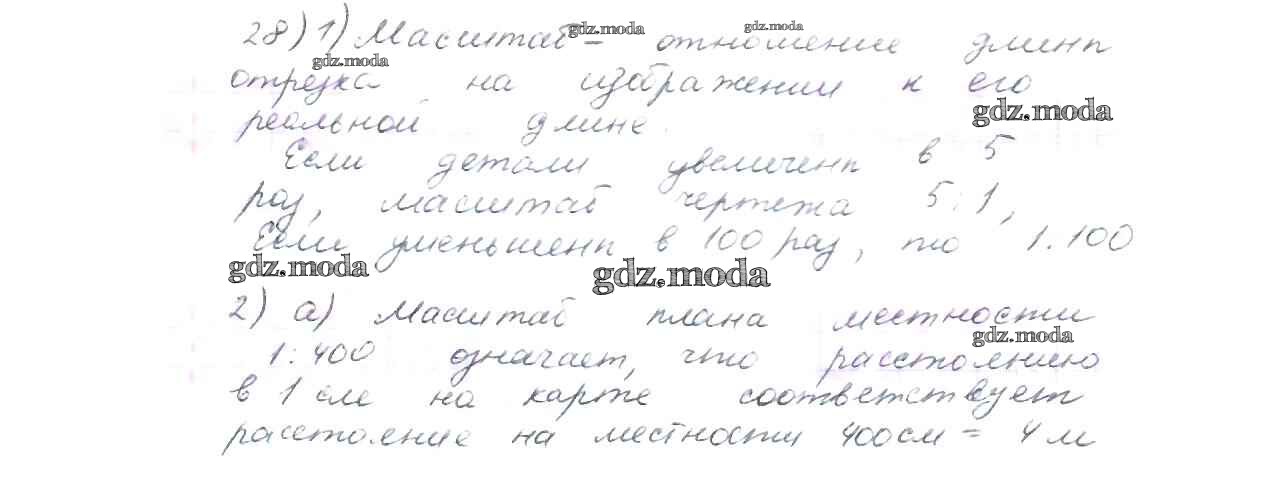 28) 1) Масштаб – отношение длины
отрезка на изображении к его
реальной длине.
Если детали увеличены в 5
раз, масштаб чертежа 5:1,
Если уменьшены в 100 раз, то 1:100
2) а) Масштаб плана местности
1:400 означает, что расстоянию
в 1 см на карте соответствует
расстояние на местности 400 см = 4 м
gdz.moda
gdz.moda
gdz.moda
gdz.moda
gdz.moda
gdz.moda
gdz.moda